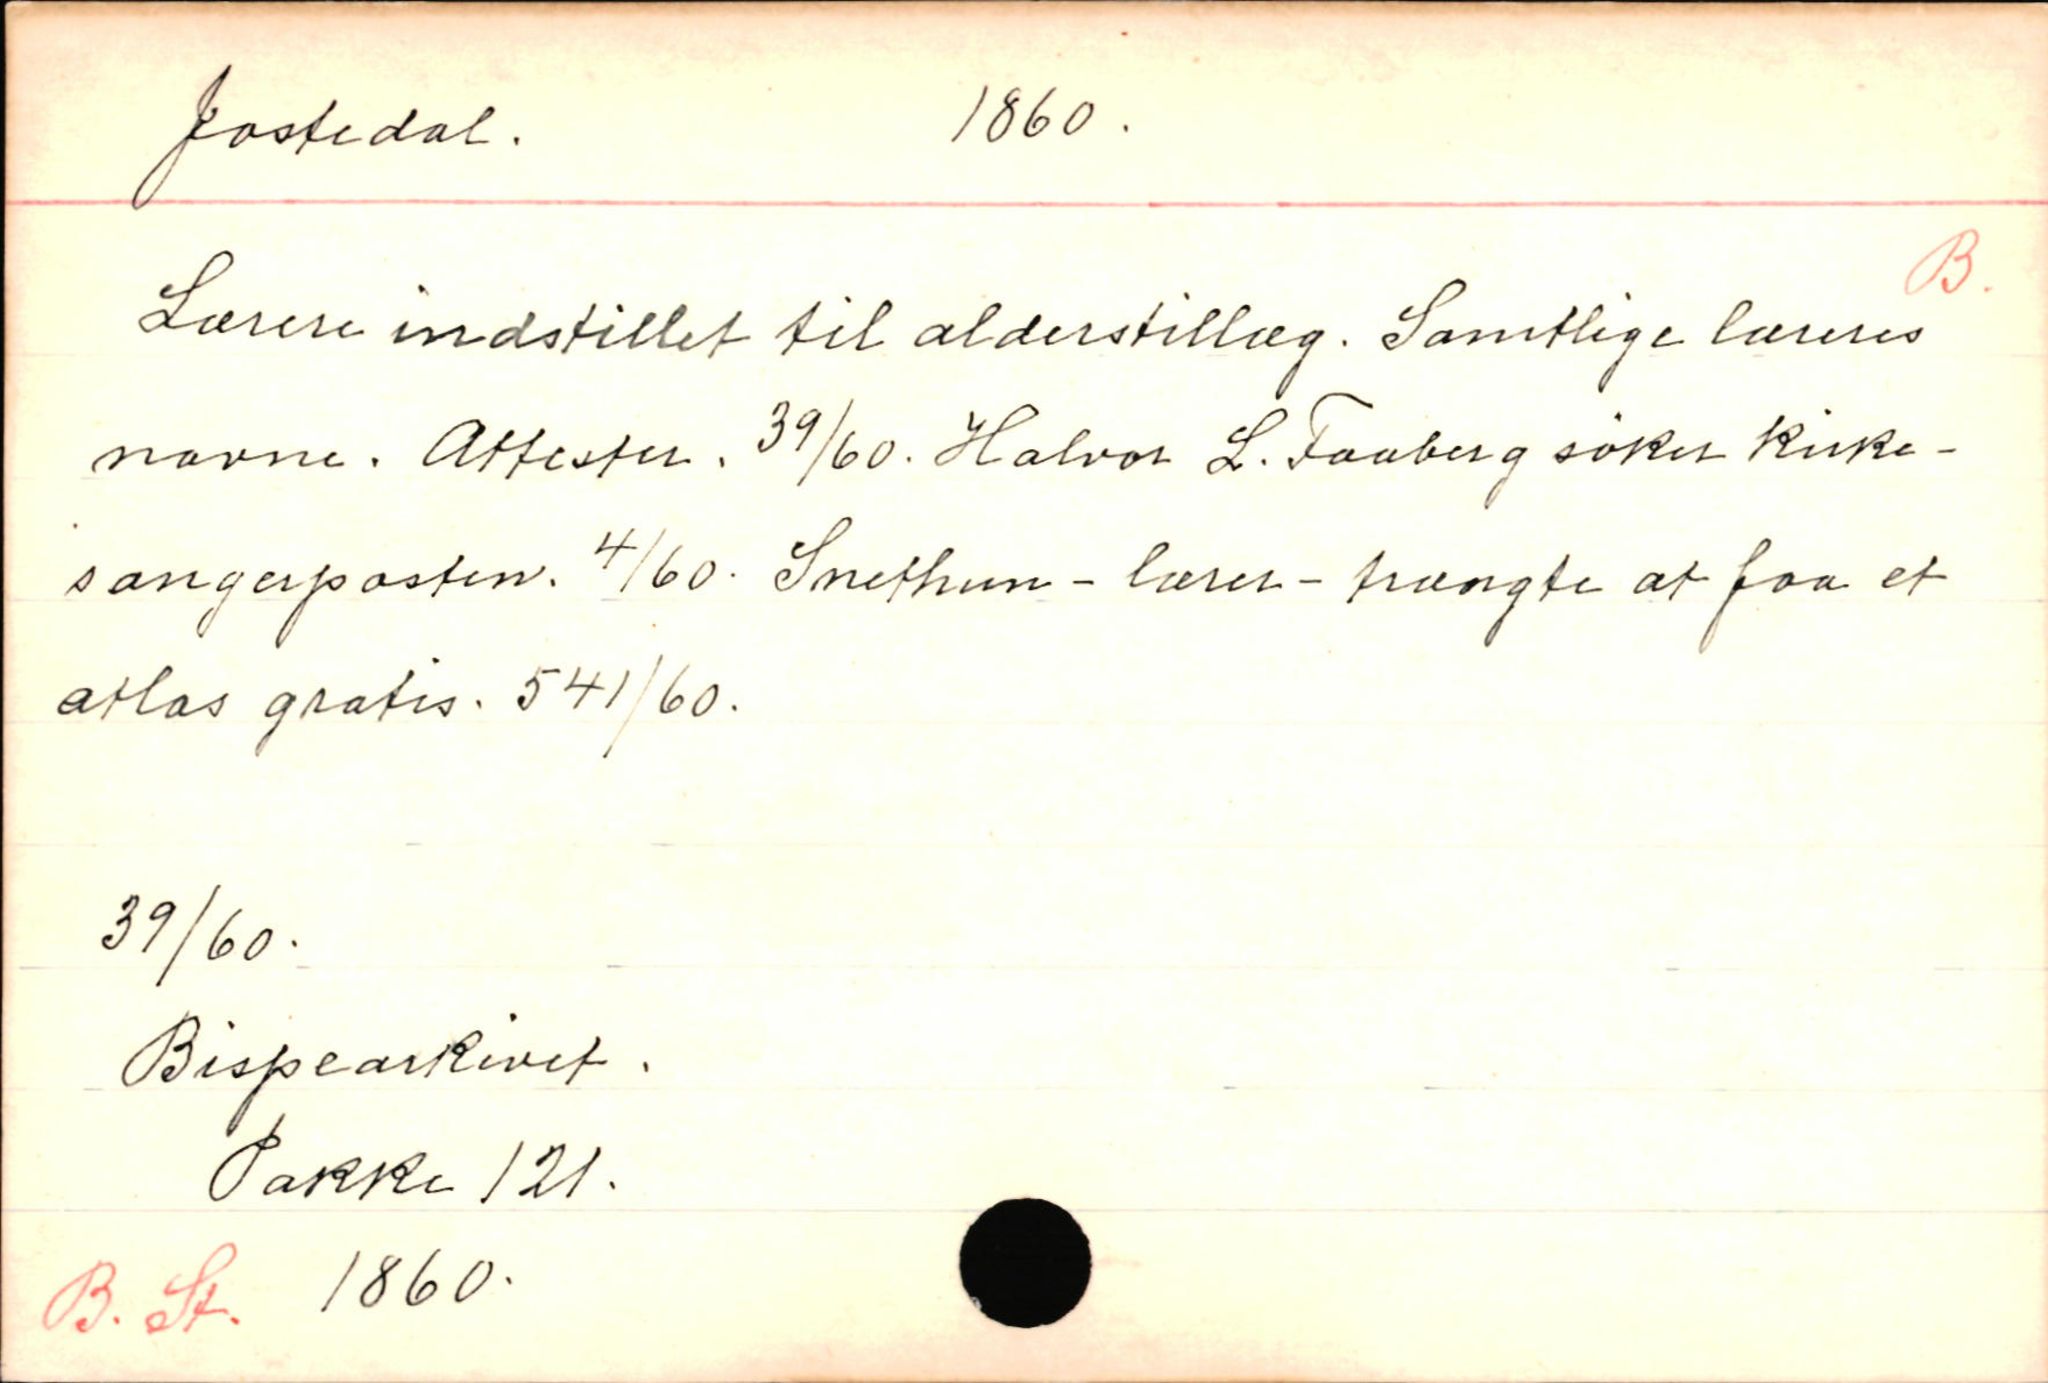 Jostedal. 1860.
B.
Lærere indstillet til alderstillæg. Samtlige læreres
navne. Attester. 39/60. Halvor L. Faaberg söker kirke-
sangerposten. 4/60. Snethun - lærer - trængte at faa et
atlas gratis. 541/60.
39/60.
Bispearkivet.
Pakke 121.
B. St. 1860.